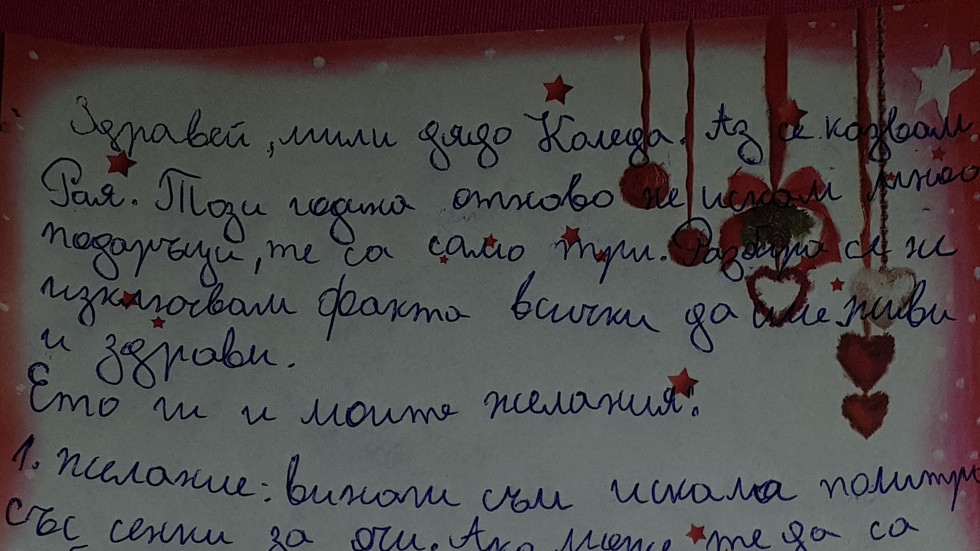 Здравей, мили дядо Коледа. Аз се казвам
Рая. Този година отново не искам много
подаръци, те са само три. Разбира се не
изключвам факта всички да сме живи
и здрави.
Ето ги и моите желания:
1. Желание: винаги съм искала политри
със сенки за очи. Ако може те да са